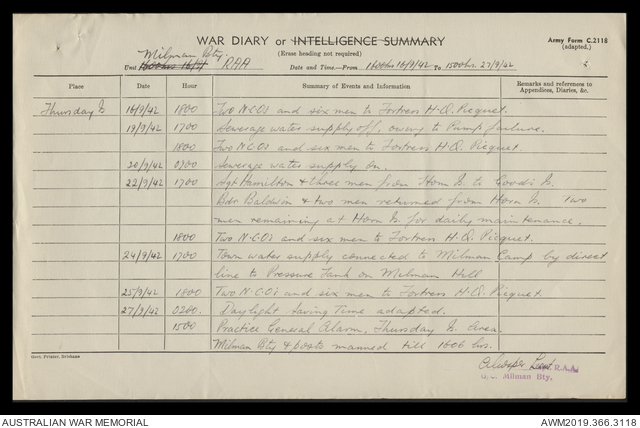 WAR DIARY or INTELLIGENCE SUMMARY
(Erase heading not required)
Army Form C.2118
(adapted.)
Milman Bty.
Unit RAA Date and Time—From 1600hrs 16/9/42 To 1500hrs. 27/9/42
Place Date Hour Summary of Events and Information Remarks and references to Appendices, Diaries, &c.
Thursday Is 16/9/42 1800 Two N.C.O's and six men to Fortress H.Q. Picquet.
19/9/42 1700 Sewerage water supply off, owing to Pump failure.
1800 Two N.C.O's and six men to Fortress H.Q. Picquet.
20/9/42 0900 Sewerage water supply on.
22/9/42 1700 Sgt Hamilton & three men from Horn Is. to Goods Is.
Bdr Baldwin & two men returned from Horn Is. Two
men remaining at Horn Is. for daily maintenance.
1800 Two N.C.O's and six men to Fortress H.Q. Picquet.
24/9/42 1700 Town water supply connected to Milman Camp by direct
line to Pressure Tank on Milman Hill
25/9/42 1800 Two N.C.O's and six men to Fortress H.Q. Picquet
27/9/42 0200. Daylight Saving Time adapted.
1500 Practice General Alarm, Thursday Is. Area.
Milman Bty & posts manned till 1606 hrs.
Govt. Printer, Brisbane
Lieut R.A.A.
O.C. Milman Bty.
AUSTRALIAN WAR MEMORIAL
AWM2019.366.3118